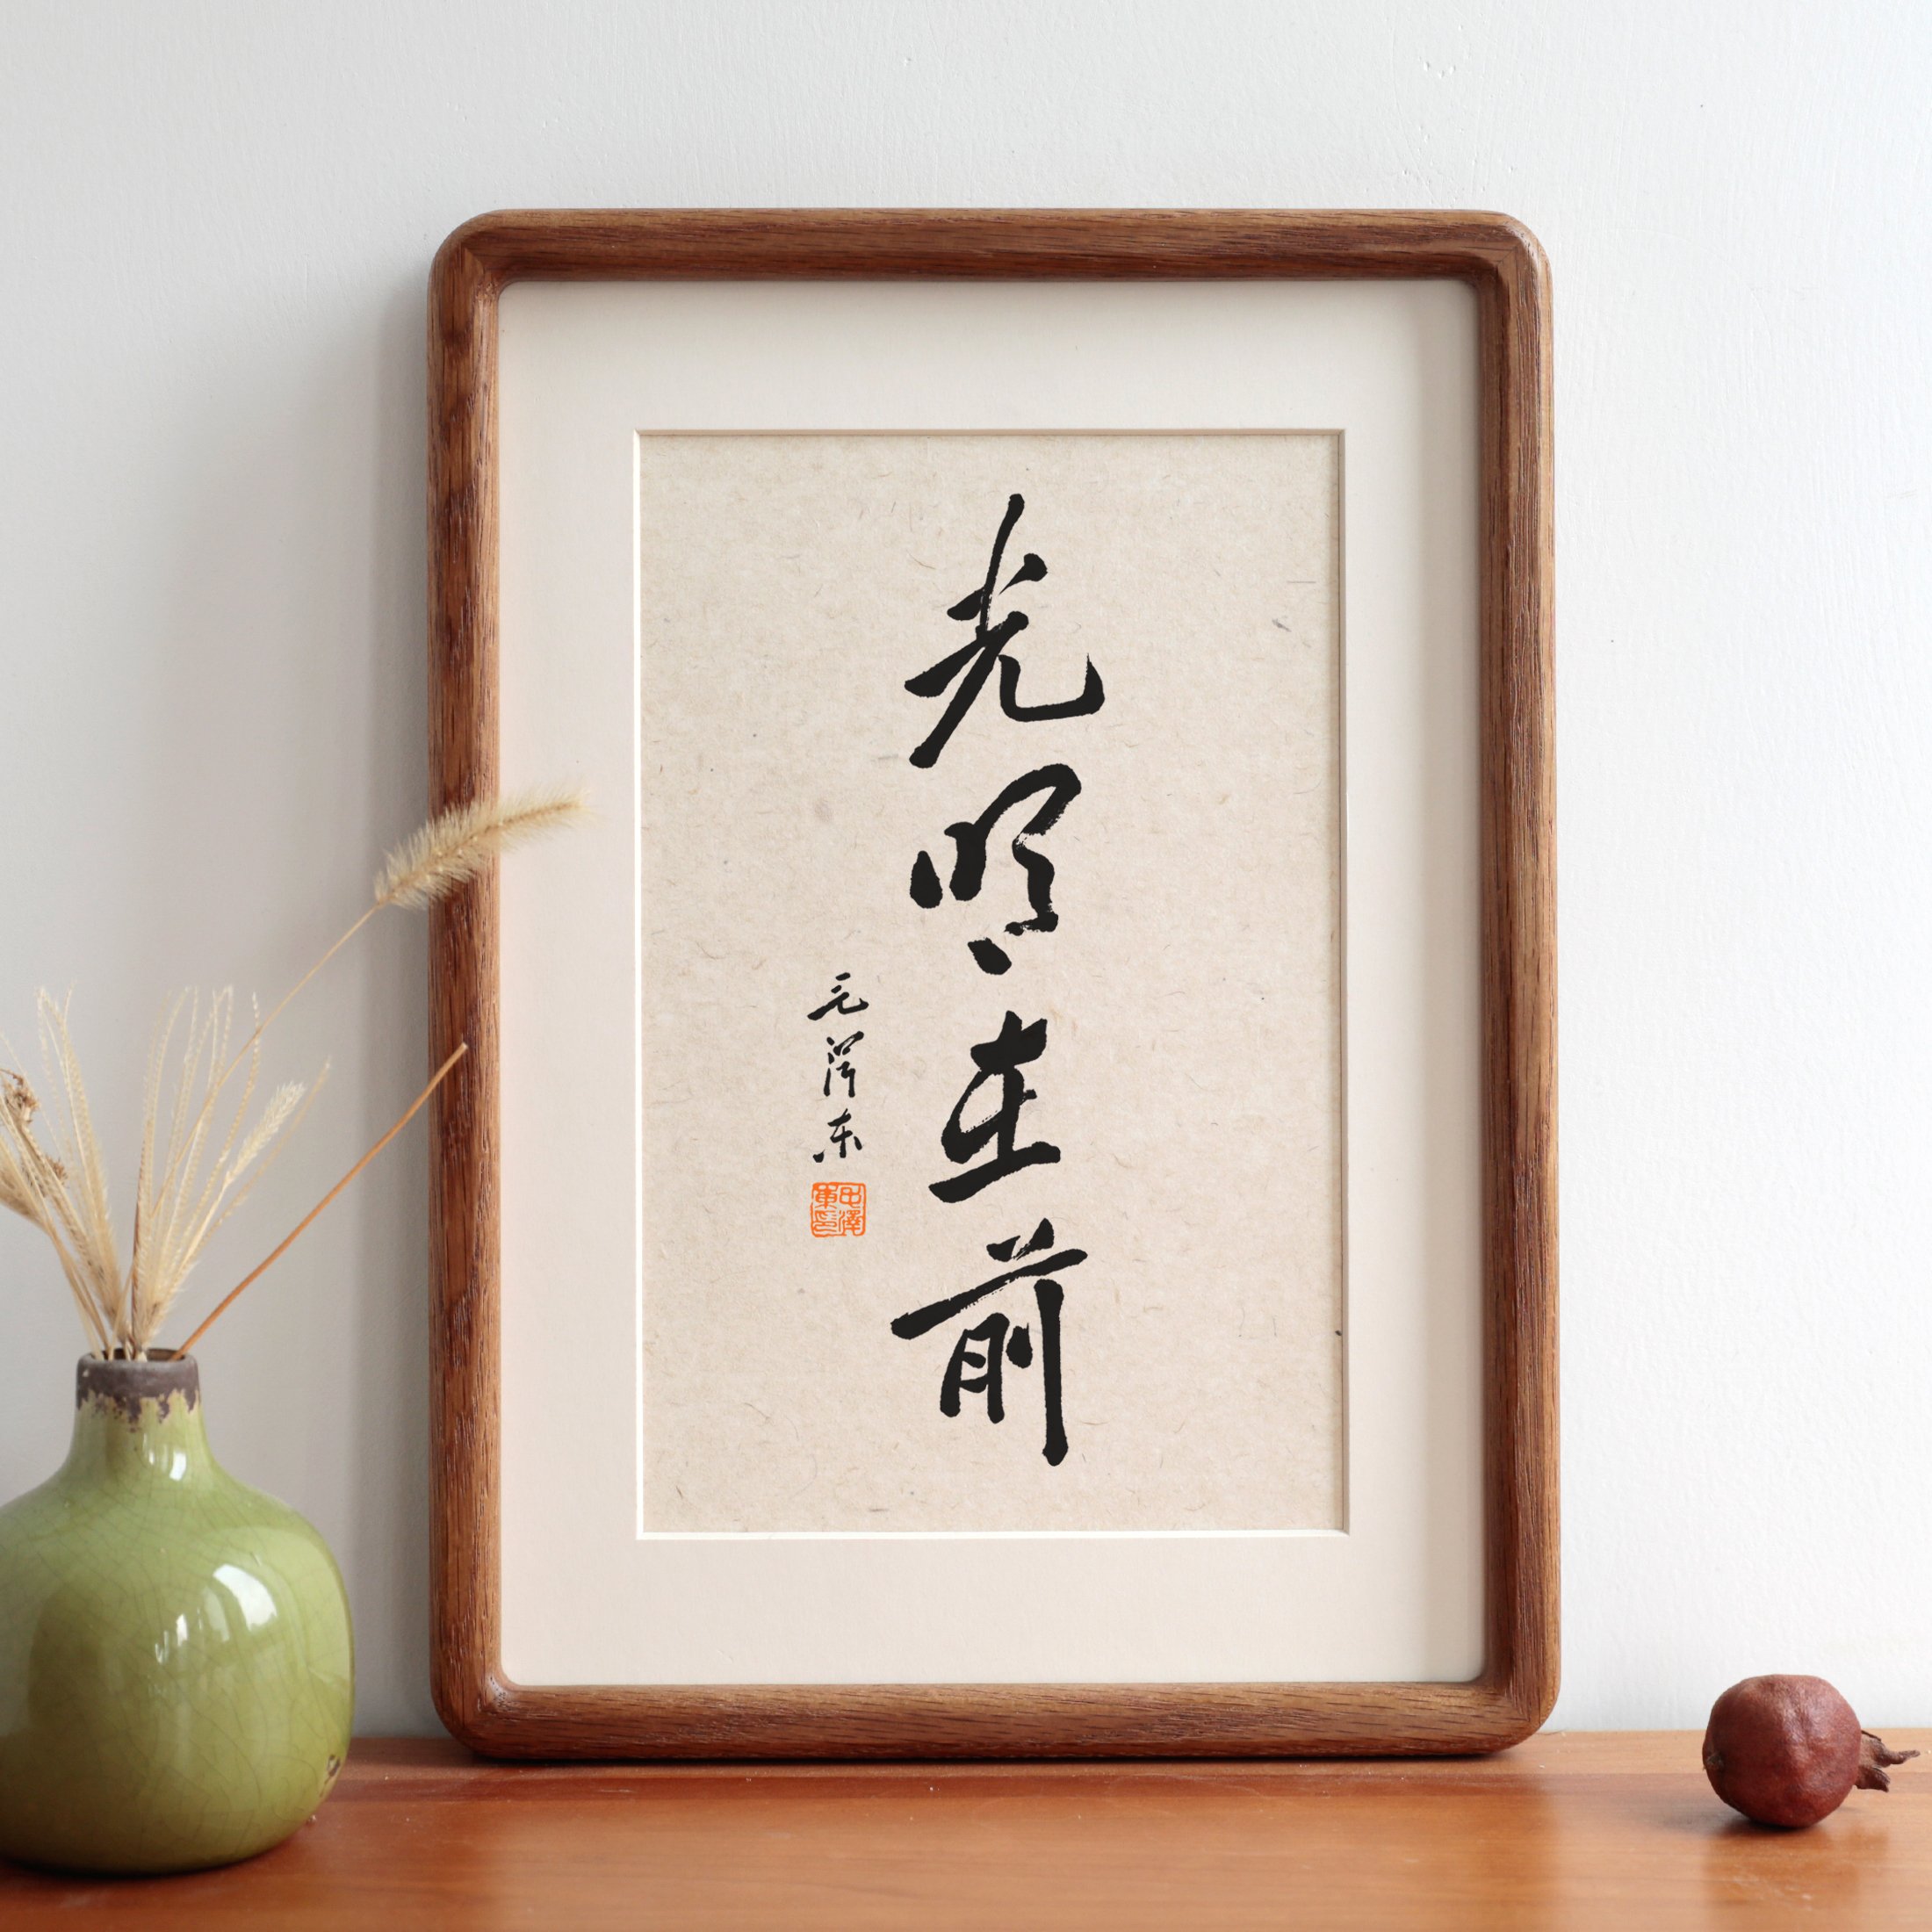 光明在前
毛泽东
毛澤東印